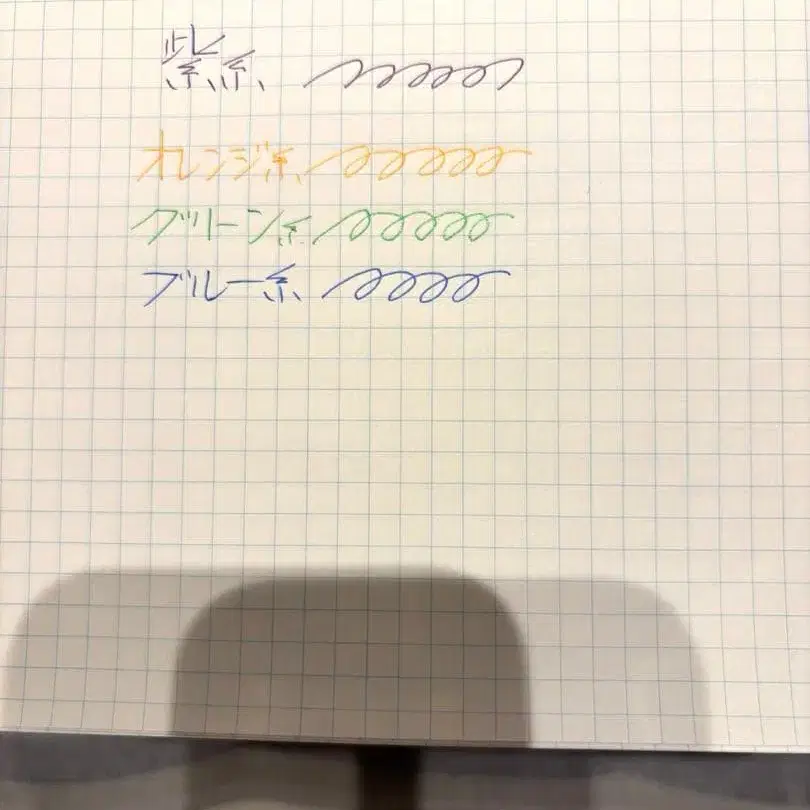 紫系
オレンジ系
グリーン系
ブルー系